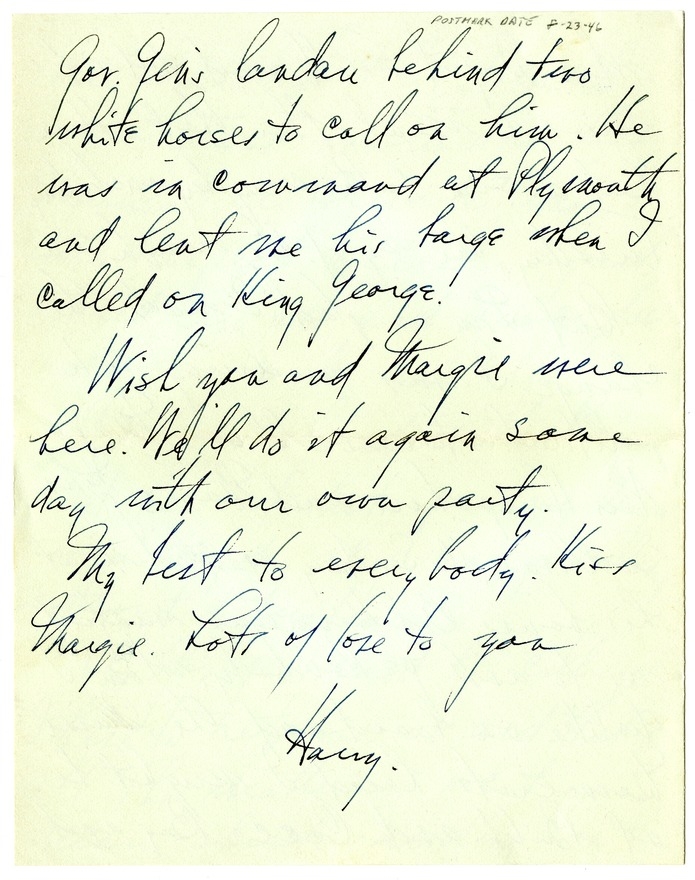 POSTMARK DATE 8-23-46
Gov. Gen's landau behind two
white horses to call on him. He
was in command at Plymouth
and lent me his barge when I
called on King George.
Wish you and Margie were
here. We'll do it again some
day with our own party.
My best to everybody. Kiss
Margie. Lots of love to you
Harry.